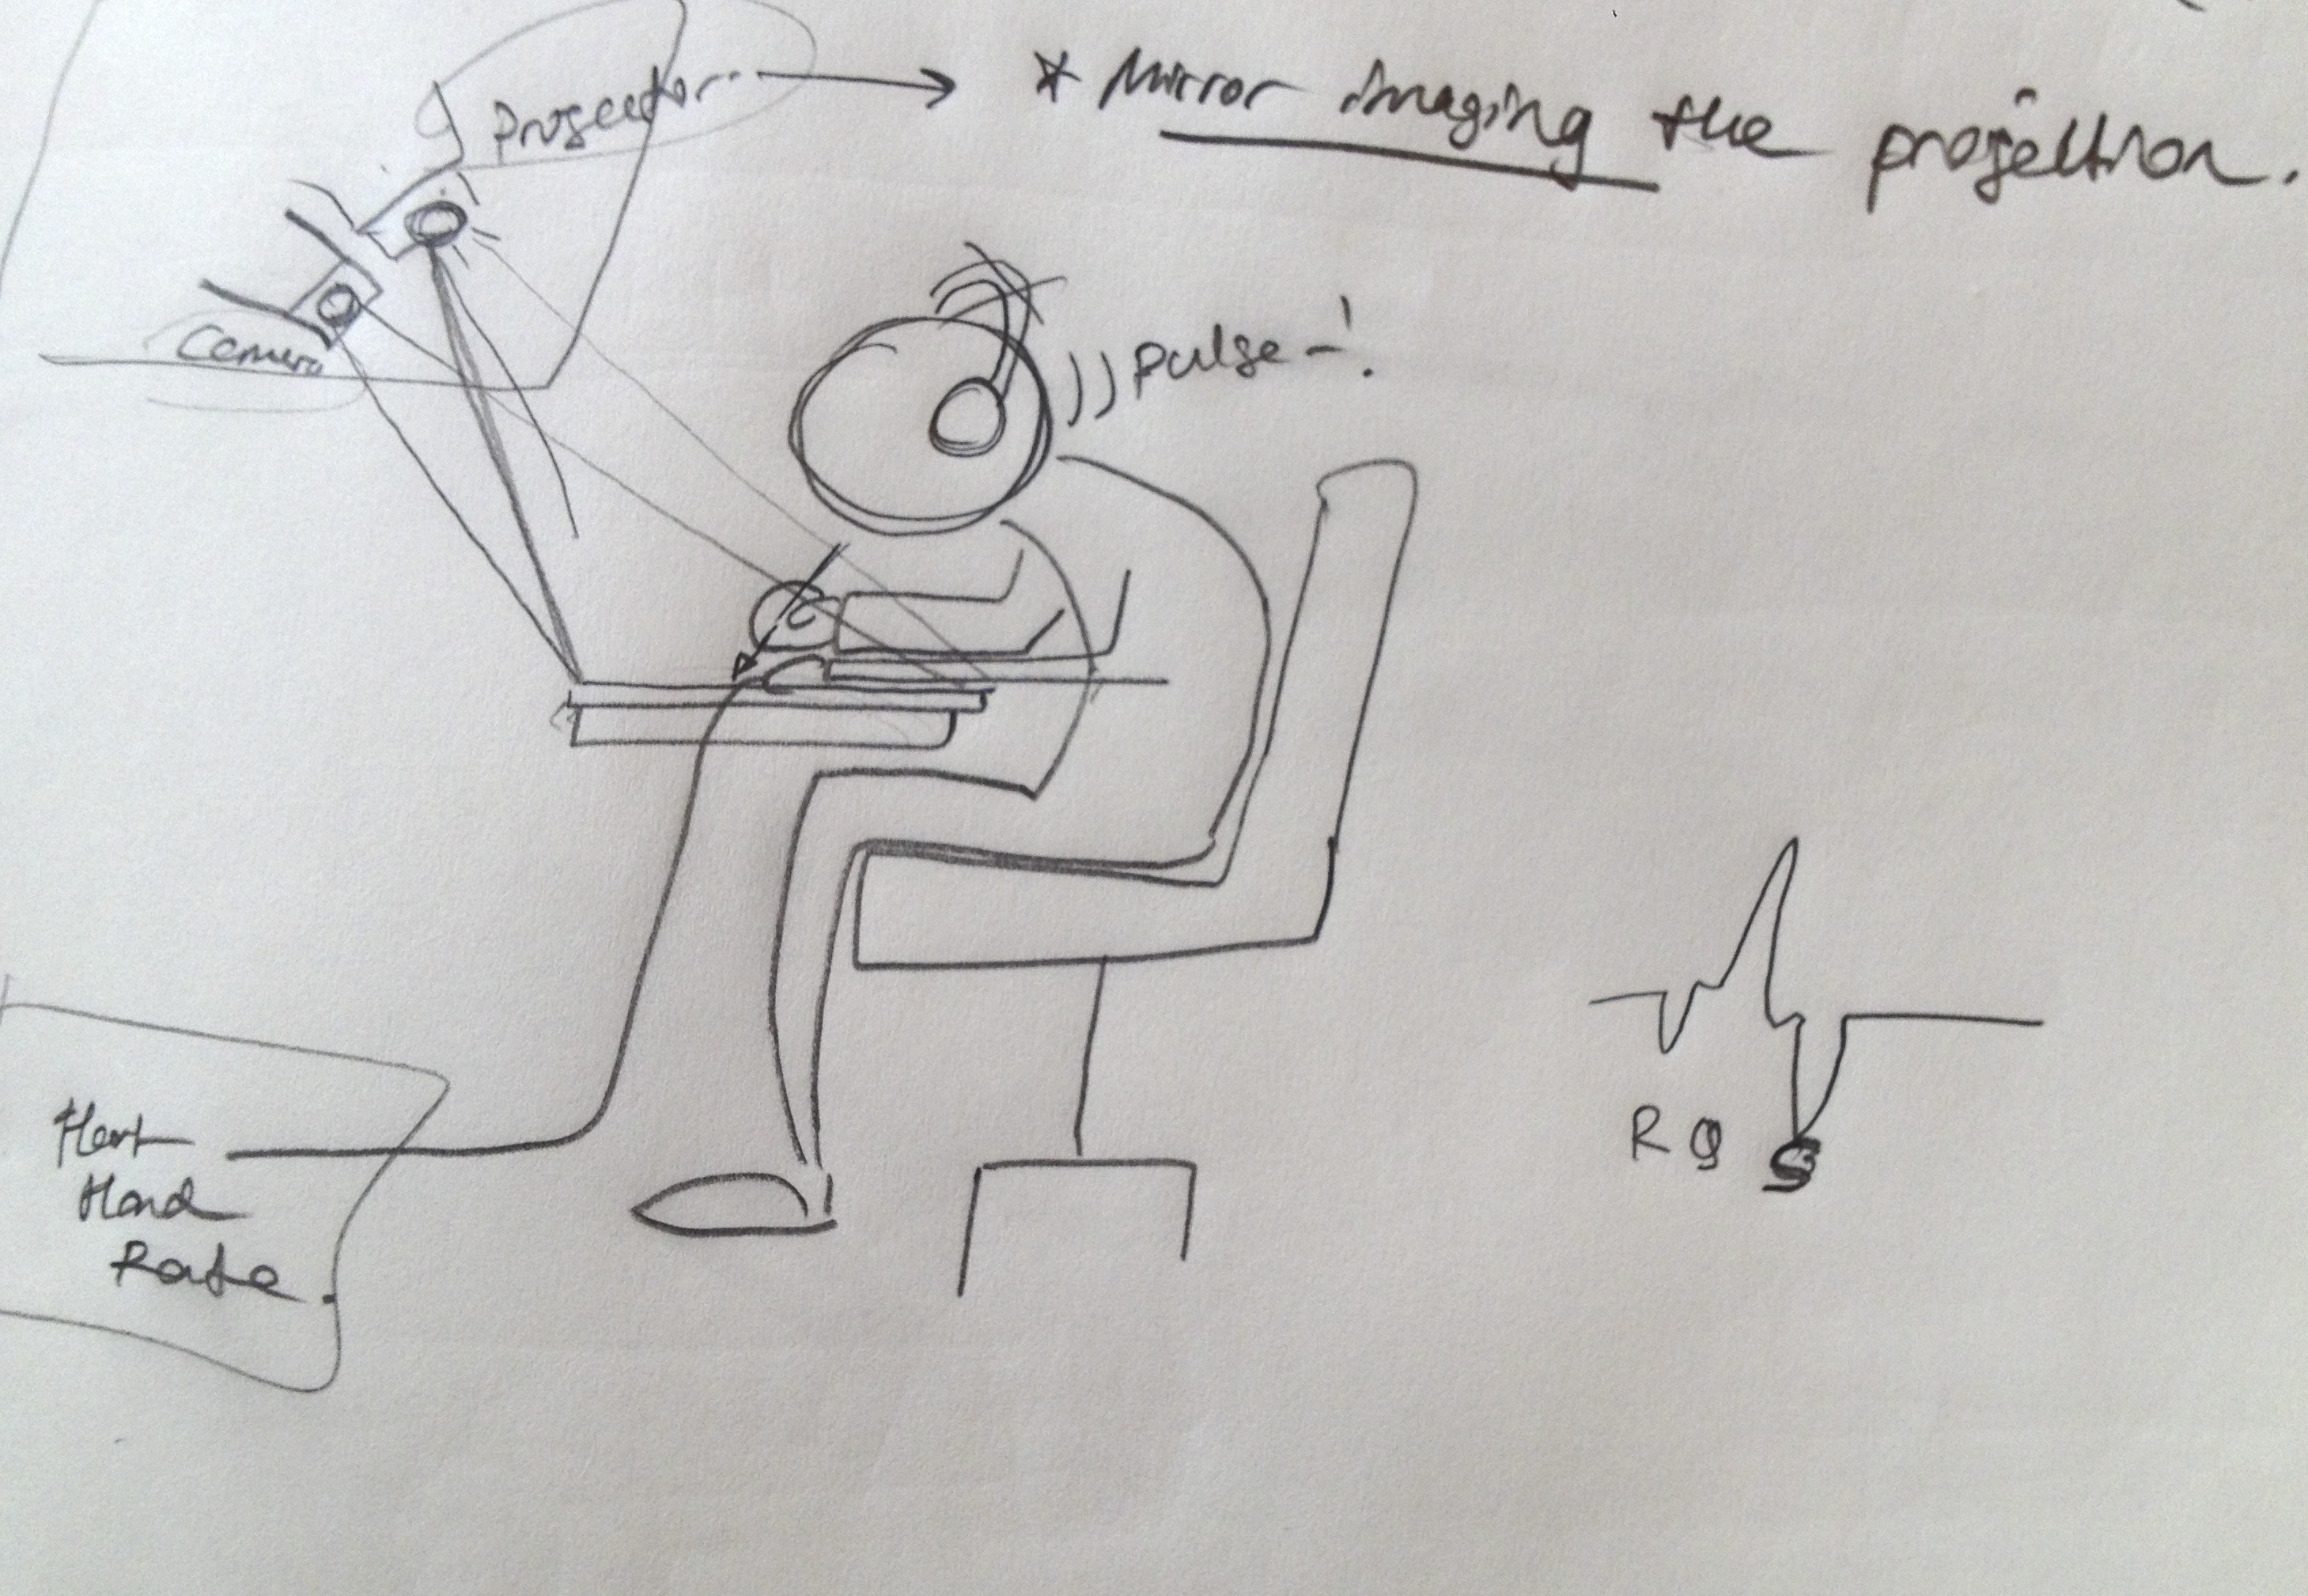 Projector..
* Mirror imaging the projection.
Camera
pulse - !
Hert
Hand
Rate.
R Q S